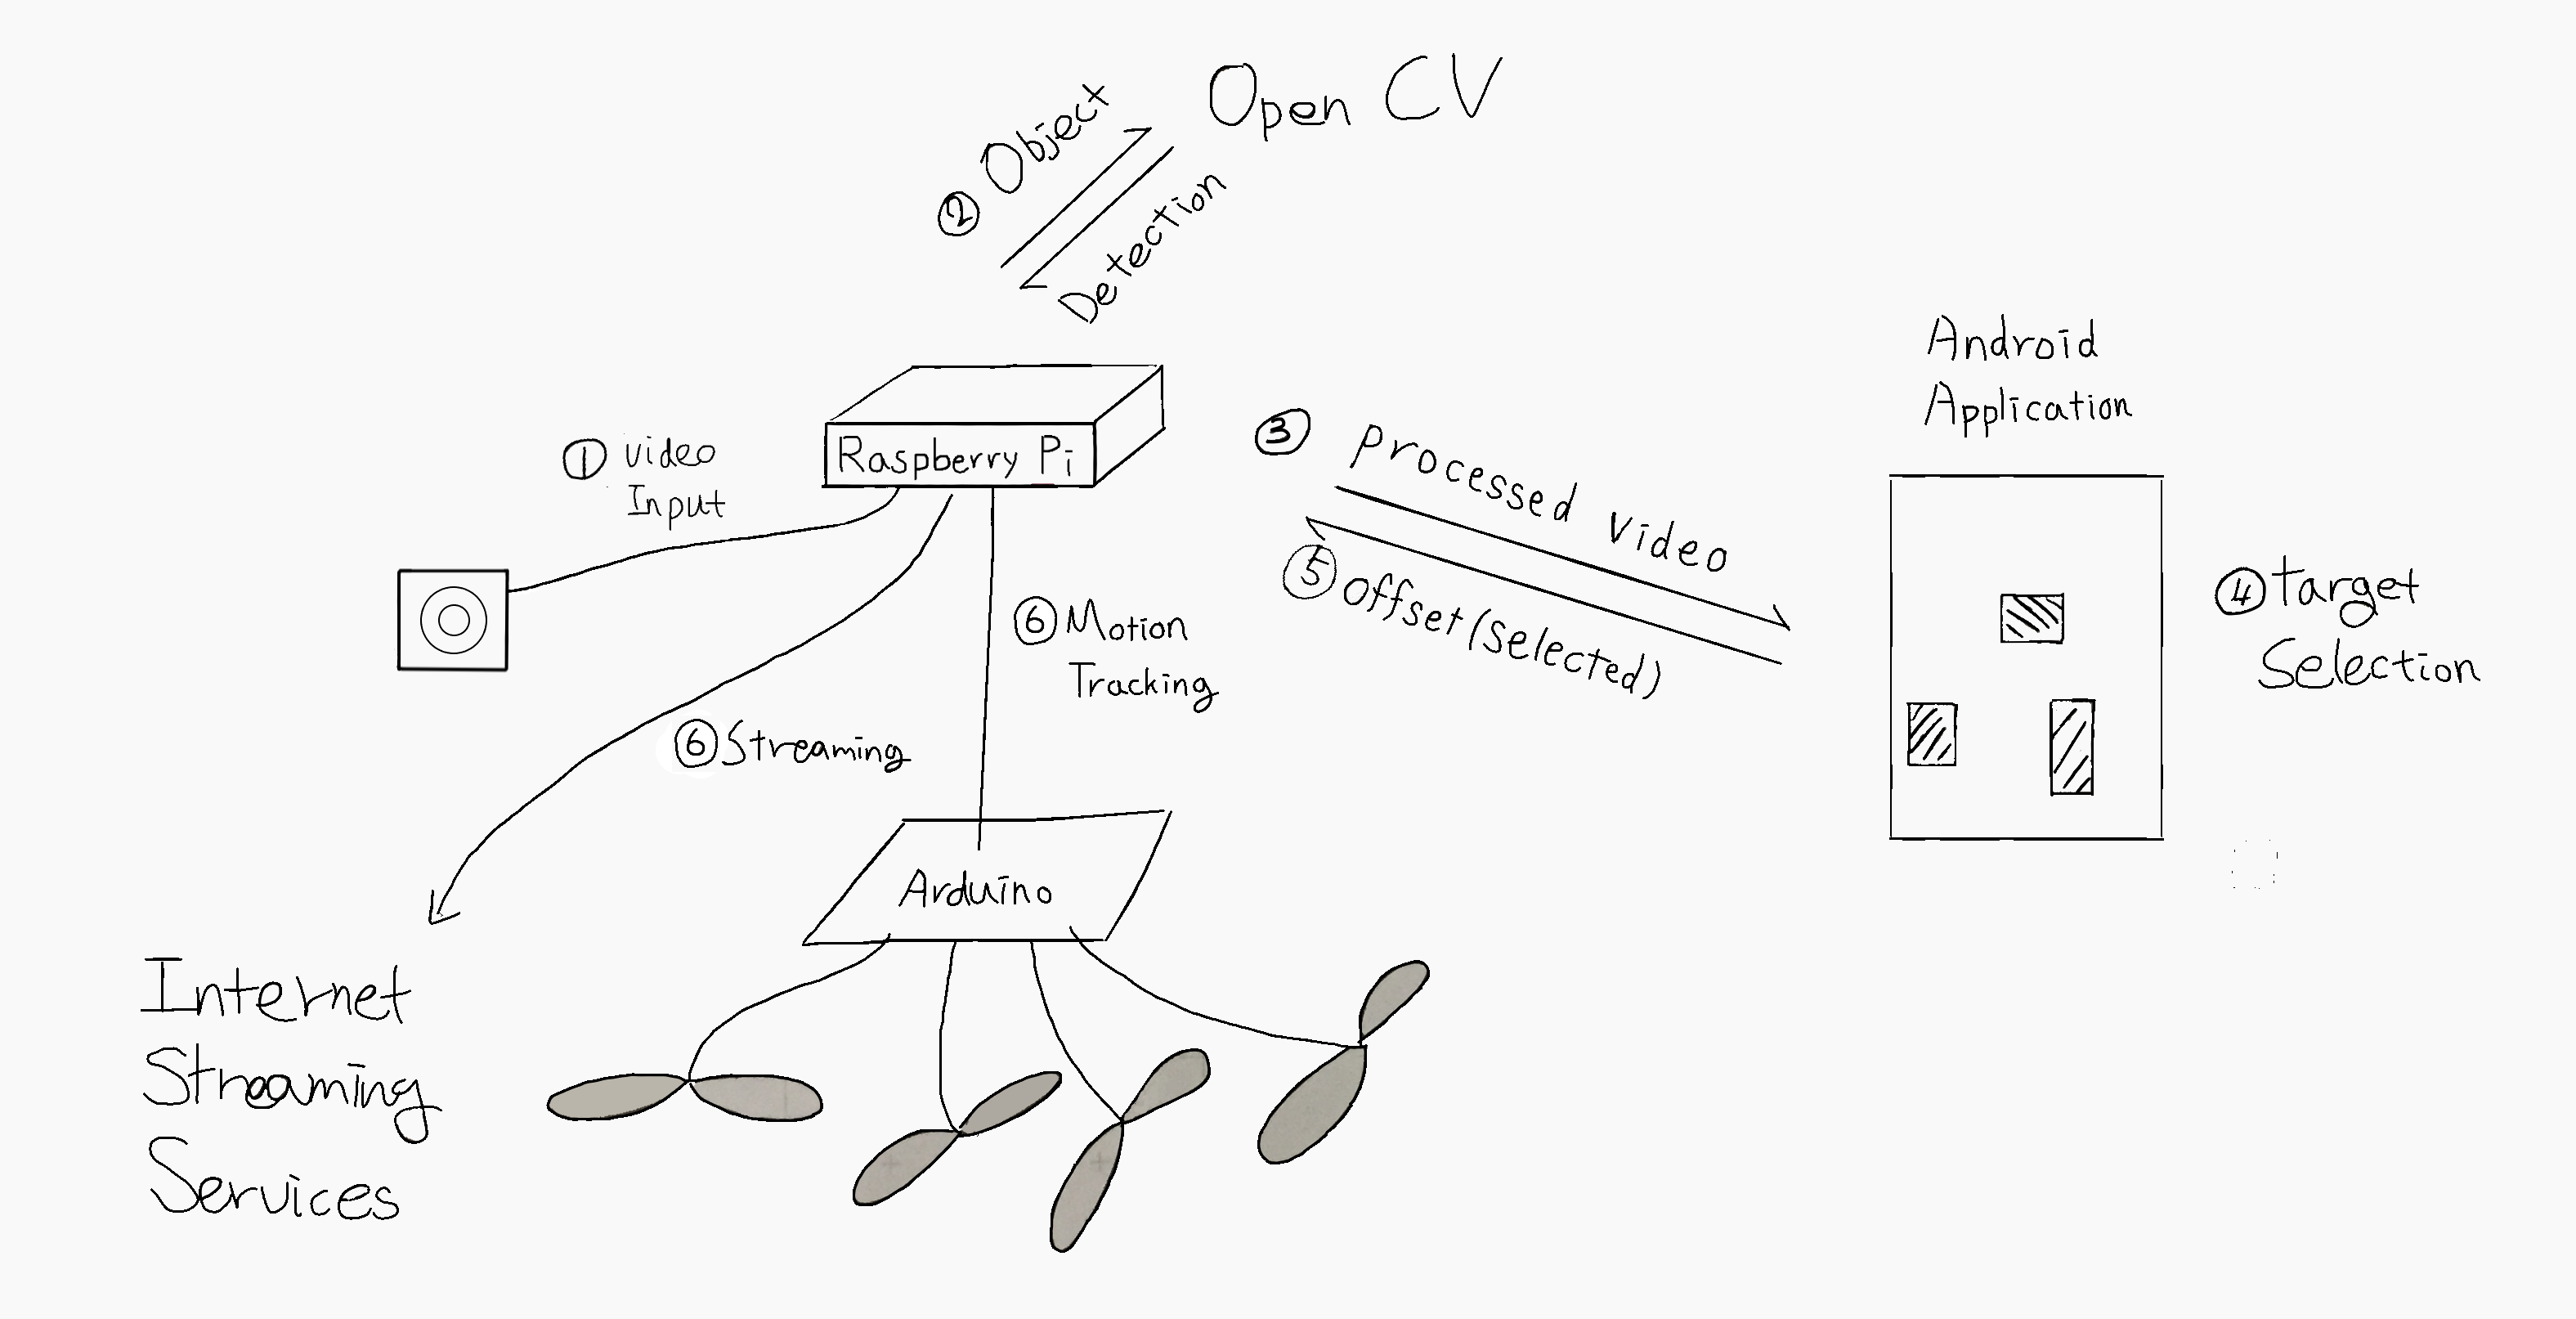 Open CV
② Object
Detection
Raspberry Pi
① video
Input
③ processed video
⑤ offset (selected)
Android
Application
④ target
Selection
⑥ Motion
Tracking
⑥ Streaming
Arduino
Internet
Streaming
Services